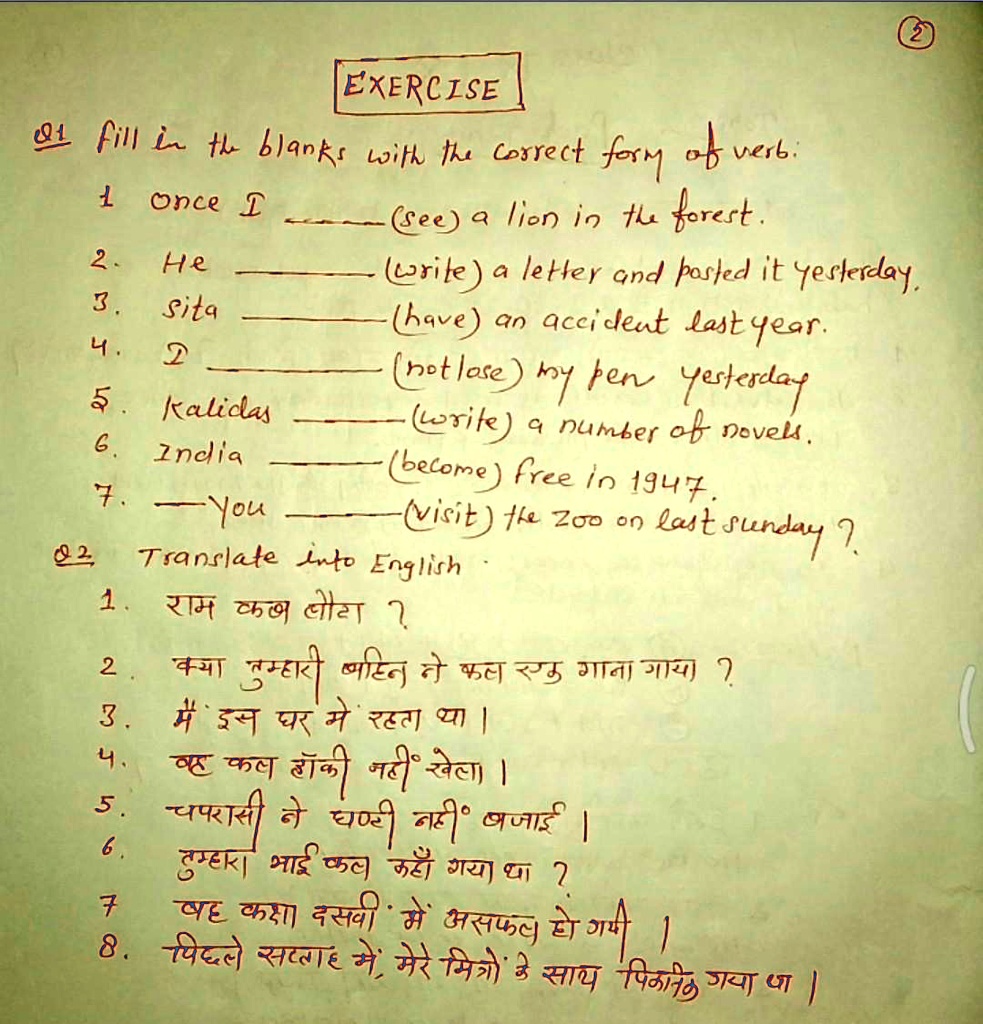 2
EXERCISE
Q1 fill in the blanks with the correct form of verb:
1 Once I ______ (see) a lion in the forest.
2. He ______ (write) a letter and posted it yesterday.
3. Sita ______ (have) an accident last year.
4. I ______ (not lose) my pen yesterday
5. Kalidas ______ (write) a number of novels.
6. India ______ (become) free in 1947.
7. — You ______ (visit) the zoo on last sunday?
Q2 Translate into English.
1. राम कब लौटा ?
2. क्या तुम्हारी बहिन ने कल एक गाना गाया ?
3. मैं इस घर में रहता था |
4. वह कल हॉकी नहीं खेला |
5. चपरासी ने घण्टी नहीं बजाई |
6. तुम्हारा भाई कल कहाँ गया था ?
7 वह कक्षा दसवीं में असफल हो गयी |
8. पिछले सप्ताह में, मेरे मित्रों के साथ पिकनिक गया था |